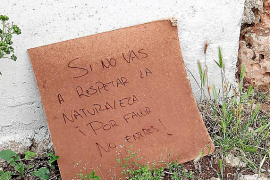 SI NO VAS
A RESPETAR LA
NATURALEZA
¡POR FAVOR
NO ENTRES!